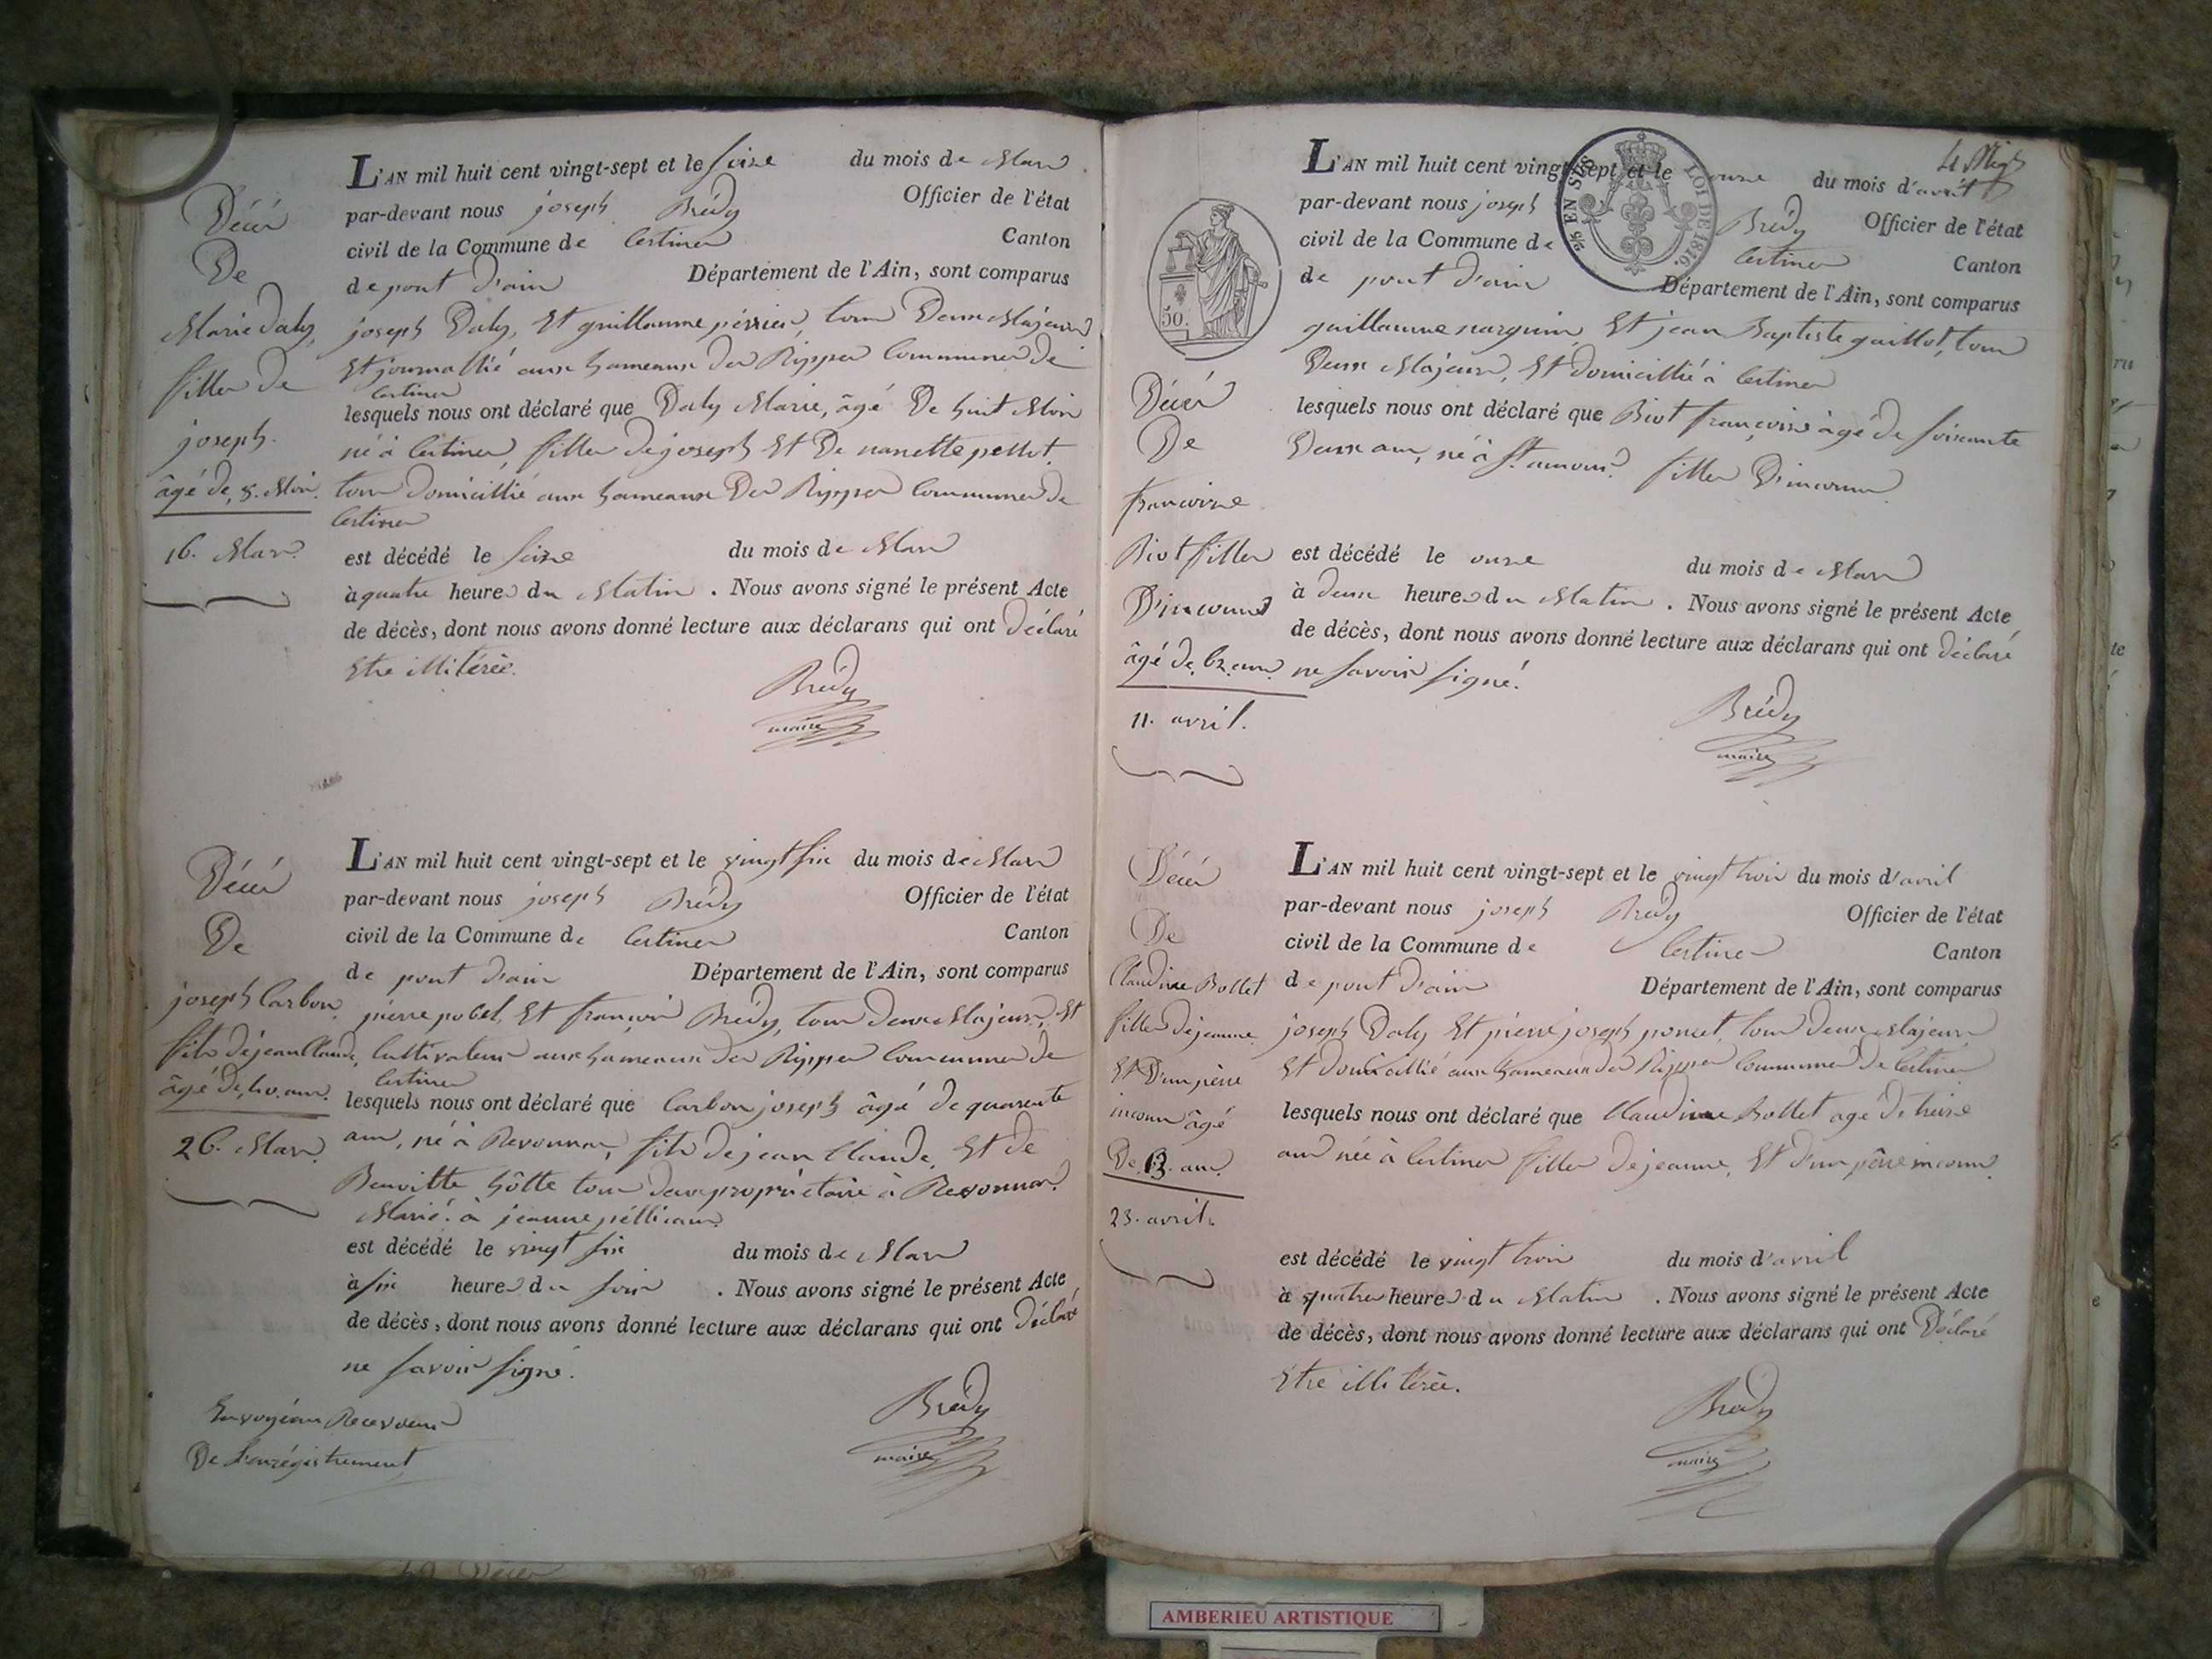 L'AN mil huit cent vingt-sept et le seize du mois de Mars
par-devant nous joseph Brédy Officier de l'état
civil de la Commune de Certines Canton
de pont d'ain Département de l'Ain, sont comparus
joseph Daly, Et guillaume périer, tous Deux Majeurs
Et journallié aux hameaux des Rippes Communes de
Certines
lesquels nous ont déclaré que Daly Marie, âgé De huit Mois
né à Certines, filles de joseph Et De nanette pellet.
tous domicillié aux hameaux Des Rippes Communes de
Certines
est décédé le seize du mois de Mars
à quatre heures du Matin . Nous avons signé le présent Acte
de décès, dont nous avons donné lecture aux déclarans qui ont déclaré
Etre illitérée.
Brédy
maire
Décès
De
Marie Daly,
filles de
joseph.
âgé de, 8. Mois.
16. Mars.
L'AN mil huit cent vingt-sept et le vingt six du mois de Mars
par-devant nous joseph Brédy Officier de l'état
civil de la Commune de Certines Canton
de pont d'ain Département de l'Ain, sont comparus
pierre pobel, Et françois Brédy, tous deux Majeurs, Et
Cultivateurs aux hameaux des Rippes Communes de
Certines
lesquels nous ont déclaré que Carbon joseph âgé de quarente
ans, né à Revonnas, fils de jean Claude, Et de
Benoitte hôtte tous deux propriétaire à Revonnas.
Marié. à jeanne
est décédé le vingt six du mois de Mars
à six heures du soir . Nous avons signé le présent Acte
de décès, dont nous avons donné lecture aux déclarans qui ont Déclaré
ne savoir signé.
Brédy
maire
Décès
De
joseph Carbon,
fils de jean Claude,
âgé De, 40. ans.
26. Mars.
Envoyé au Receveur
De L'enrégistrement
4
L'AN mil huit cent vingt-sept et le onze du mois d'avril
par-devant nous joseph Brédy Officier de l'état
civil de la Commune de Certines Canton
de pont d'ain Département de l'Ain, sont comparus
guillaume Et jean Baptiste guillot, tous
Deux Majeurs, Et domicillié à Certines
lesquels nous ont déclaré que Biot françoise âgé de soixante
Deux ans, né à St. amour? filles D'inconnus.
est décédé le onze du mois de Mars
à deux heures du Matin . Nous avons signé le présent Acte
de décès, dont nous avons donné lecture aux déclarans qui ont déclaré
ne savoir signé.
Brédy
maire
2/5 EN SUS
LOI DE 1816.
50.
Décès
De
francoise
Biot filles
D'inconnus
âgé de, 62. ans.
11. avril.
L'AN mil huit cent vingt-sept et le vingt trois du mois d'avril
par-devant nous joseph Brédy Officier de l'état
civil de la Commune de Certines Canton
de pont d'ain Département de l'Ain, sont comparus
joseph Daly Et pierre joseph poncet, tous deux Majeurs
Et domicillié aux hameaux des Rippes Communes de Certines
lesquels nous ont déclaré que Claudine Bollet agé de treize
ans née à Certines filles De jeanne, Et d'un père inconu.
est décédé le vingt trois du mois d'avril
à quatres heures du Matin . Nous avons signé le présent Acte
de décès, dont nous avons donné lecture aux déclarans qui ont Déclaré
Etre illitérée.
Brédy
maire
Décès
De
Claudine Bollet
filles de jeanne.
Et D'un père
inconu âgé
De. 13. ans.
23. avril.
AMBERIEU ARTISTIQUE